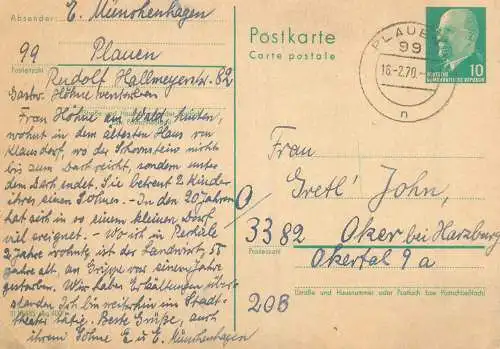 Absender: E. Münchenhagen
99 Plauen
Postleitzahl
Rudolf Hallmeyerstr. 82
Postkarte
Carte postale
PLAUEN
99
16.-2.70.-
n
DEUTSCHE
DEMOKRATISCHE REPUBLIK
10
Frau Höhne am Wald hinten,
wohnt in dem ältesten Haus von
Klausdorf, wo der Schornstein nicht
bis zum Dach reicht, sondern unter
dem Dach endet. Sie betreut 2 Kinder
ihres einen Sohnes. - In den 20 Jahren
hat sich in so einem kleinen Dorf
viel ereignet. - Wo ich in
2 Jahre wohnte, ist der Landwirt, 55
Jahre alt, an Grippe vor einem Jahre
gestorben. Wir haben Erkältungen
standen. Ich bin weiterhin im Stadt-
theater tätig. Beste Grüße, auch
ihrem Sohne E. u. E. Münchenhagen
Frau
Gretl' John,
3382 Oker bei Harzburg
Postleitzahl
Okertal 9a
20B
(Straße und Hausnummer oder Postfach bzw. Postschließfach)